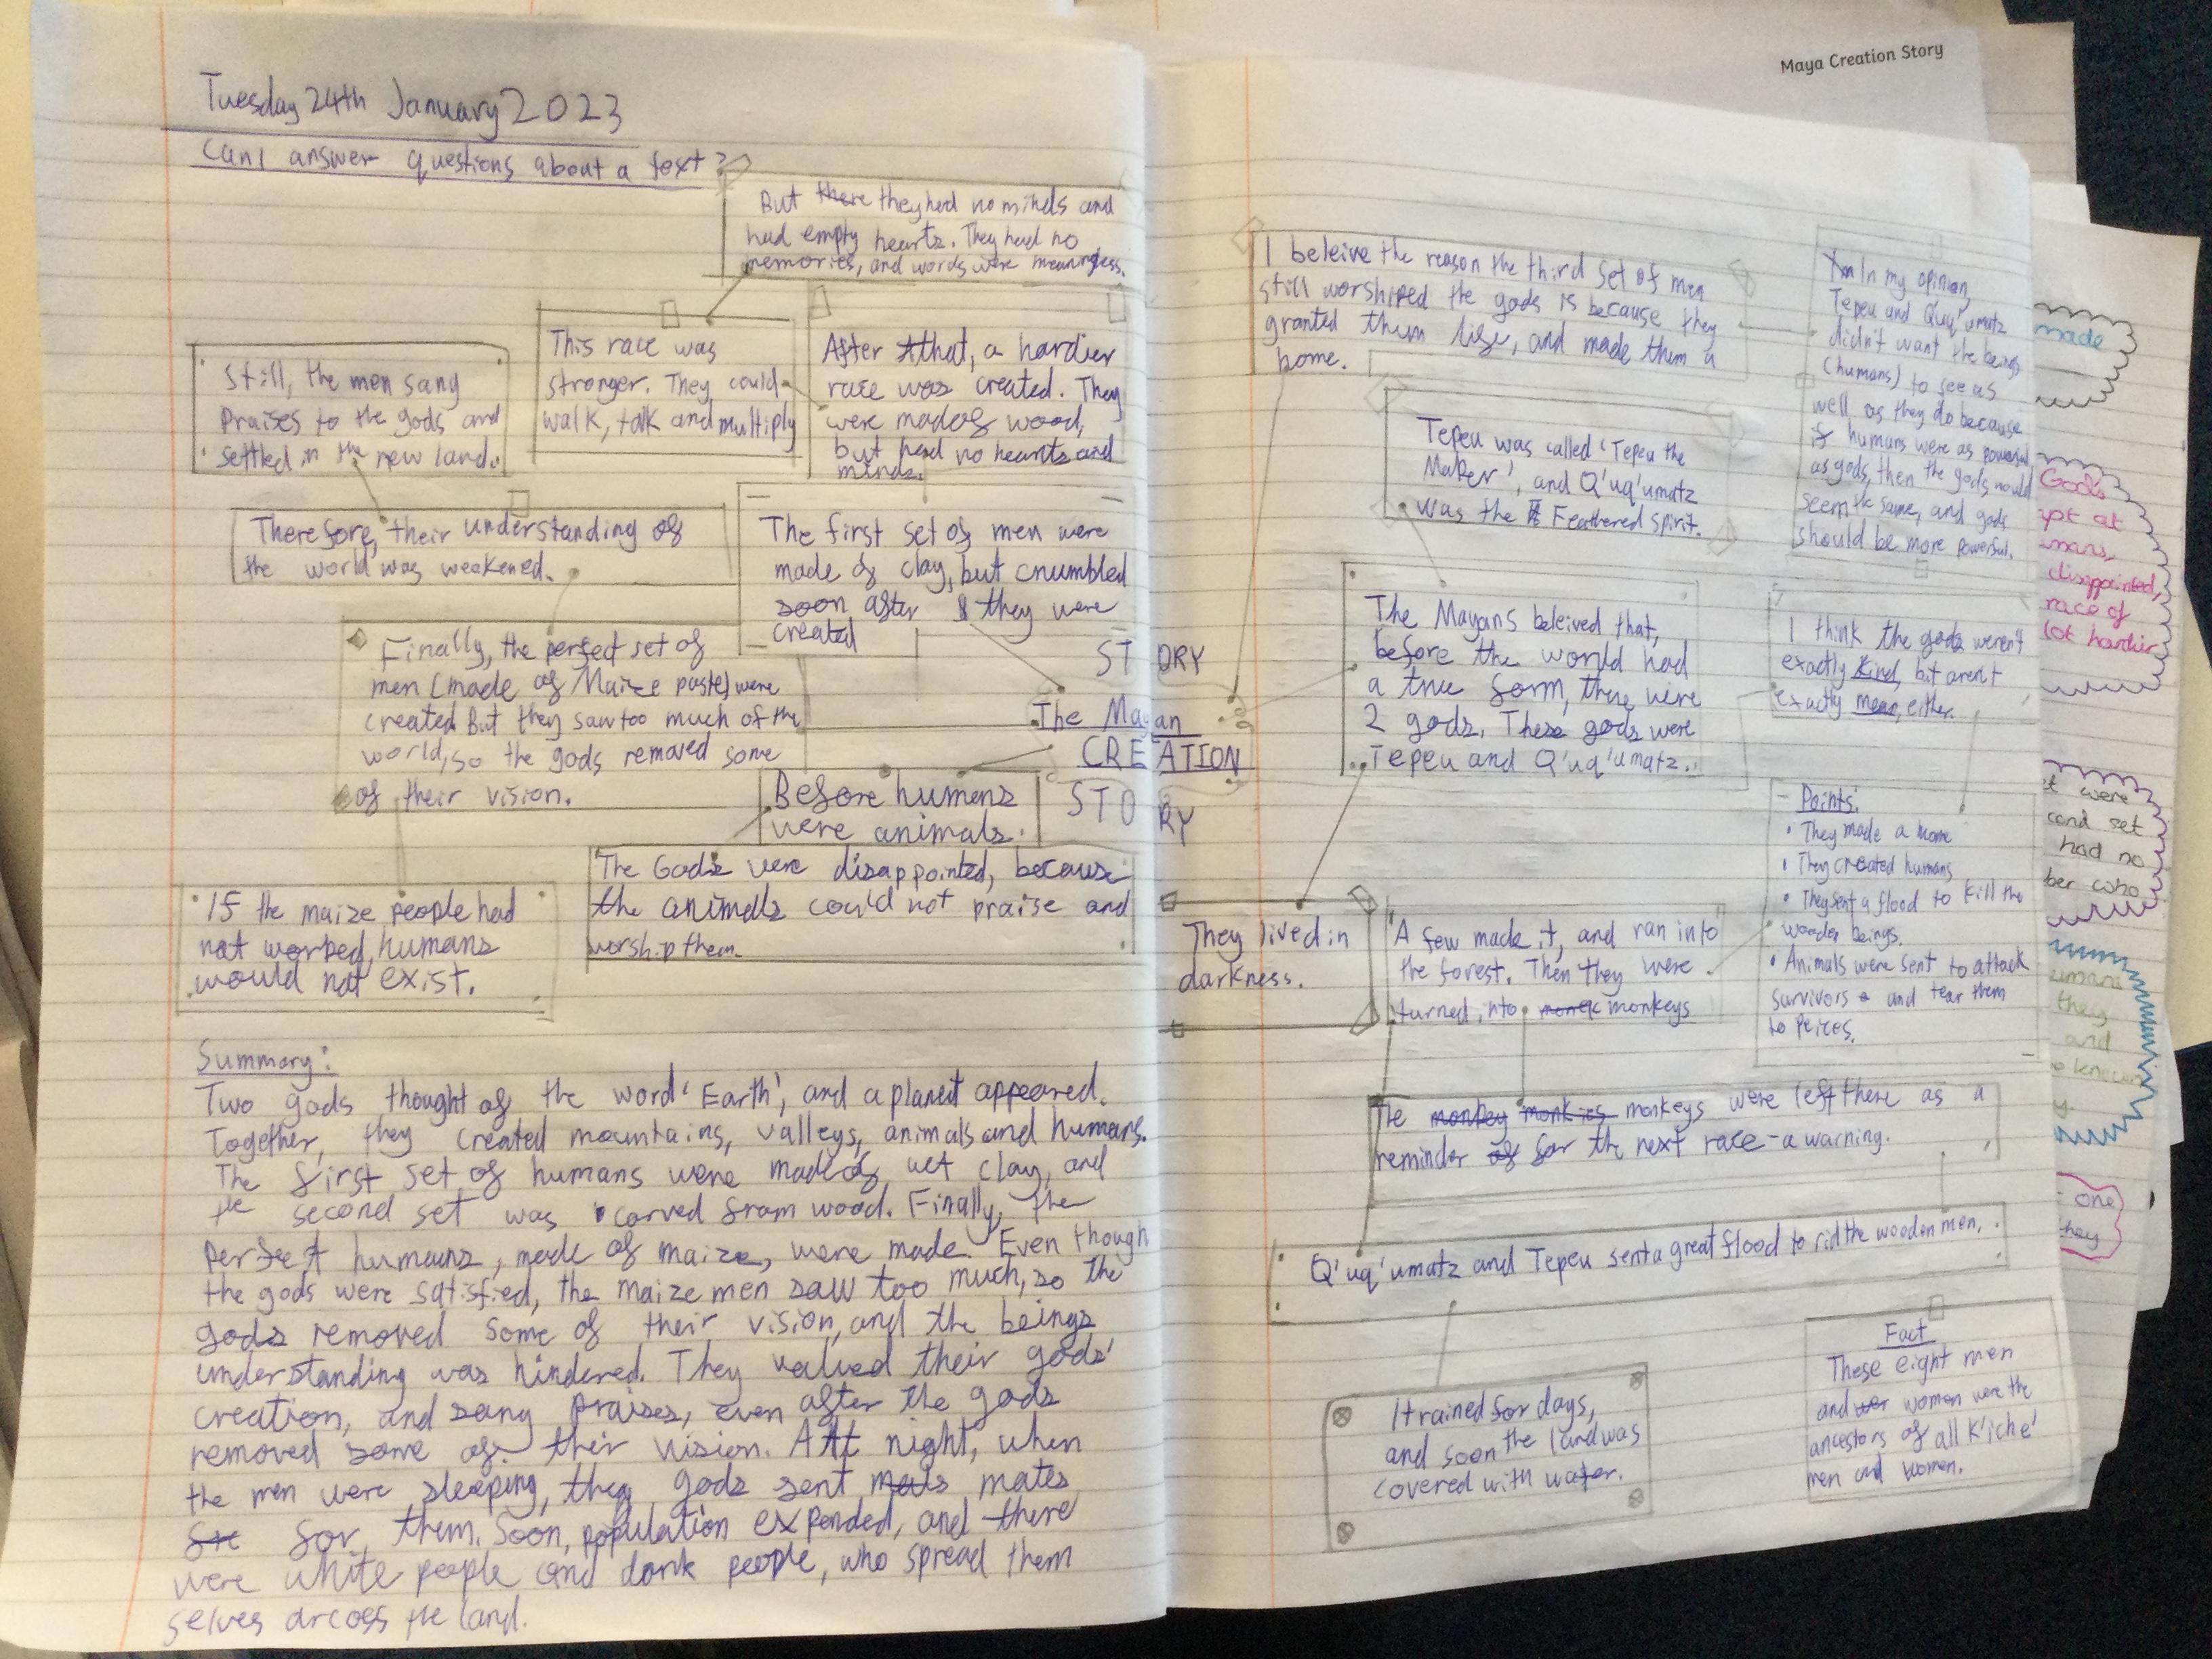 Maya Creation Story
Tuesday 24th January 2023
Can I answer questions about a text?
But there they had no minds and
had empty hearts. They had no
memories, and words were meaningless.
Still, the men sang
praises to the gods and
settled in the new land.
This race was
stronger. They could
walk, talk and multiply
After that, a hardier
race was created. They
were made of wood,
but had no hearts and
minds.
Therefore, their understanding of
the world was weakened.
The first set of men were
made of clay, but crumbled
soon after they were
created
Finally, the perfect set of
men (made of Maize paste) were
created. But they saw too much of the
world, so the gods removed some
of their vision.
STORY
The Mayan
CREATION
STORY
Before humans
were animals.
The Gods were disappointed, because
the animals could not praise and
worship them.
If the maize people had
not worked, humans
would not exist.
Summary:
Two gods thought of the word 'Earth', and a planet appeared.
Together, they created mountains, valleys, animals and humans.
The first set of humans were made of wet clay, and
the second set was carved from wood. Finally, the
perfect humans, made of maize, were made. Even though
the gods were satisfied, the maize men saw too much, so the
gods removed some of their vision, and the beings
understanding was hindered. They valued their gods'
creation, and sang praises, even after the gods
removed some of their vision. At night, when
the men were sleeping, they gods sent mates
for them. Soon, population expended, and there
were white people and dark people, who spread them
selves arcoss the land.
I beleive the reason the third set of men
still worshiped the gods is because they
granted them life, and made them a
home.
In my opinion,
Tepeu and Q'uq'umatz
didn't want the beings
(humans) to see as
well as they do because
if humans were as powerful
as gods, then the gods would
seem the same, and gods
should be more powerful.
Tepeu was called 'Tepeu the
Maker', and Q'uq'umatz
was the Feathered Spirit.
The Mayans beleived that,
before the world had
a true form, there were
2 gods. These gods were
Tepeu and Q'uq'umatz.
I think the gods weren't
exactly kind, but aren't
exactly mean, either.
Points:
• They made a home
• They created humans
• They sent a flood to kill the
wooden beings.
• Animals were sent to attack
survivors and tear them
to peices.
They lived in
darkness.
A few made it, and ran into
the forest. Then they were
turned into monkeys
The monkey monkies monkeys were left there as a
reminder of for the next race - a warning.
Q'uq'umatz and Tepeu sent a great flood to rid the wooden men.
It rained for days,
and soon the land was
covered with water.
Fact
These eight men
and women were the
ancestors of all K'iche'
men and women.
made
Gods
at
disappointed,
race of
lot hardier
were
set
had no
who
they
and
one
they